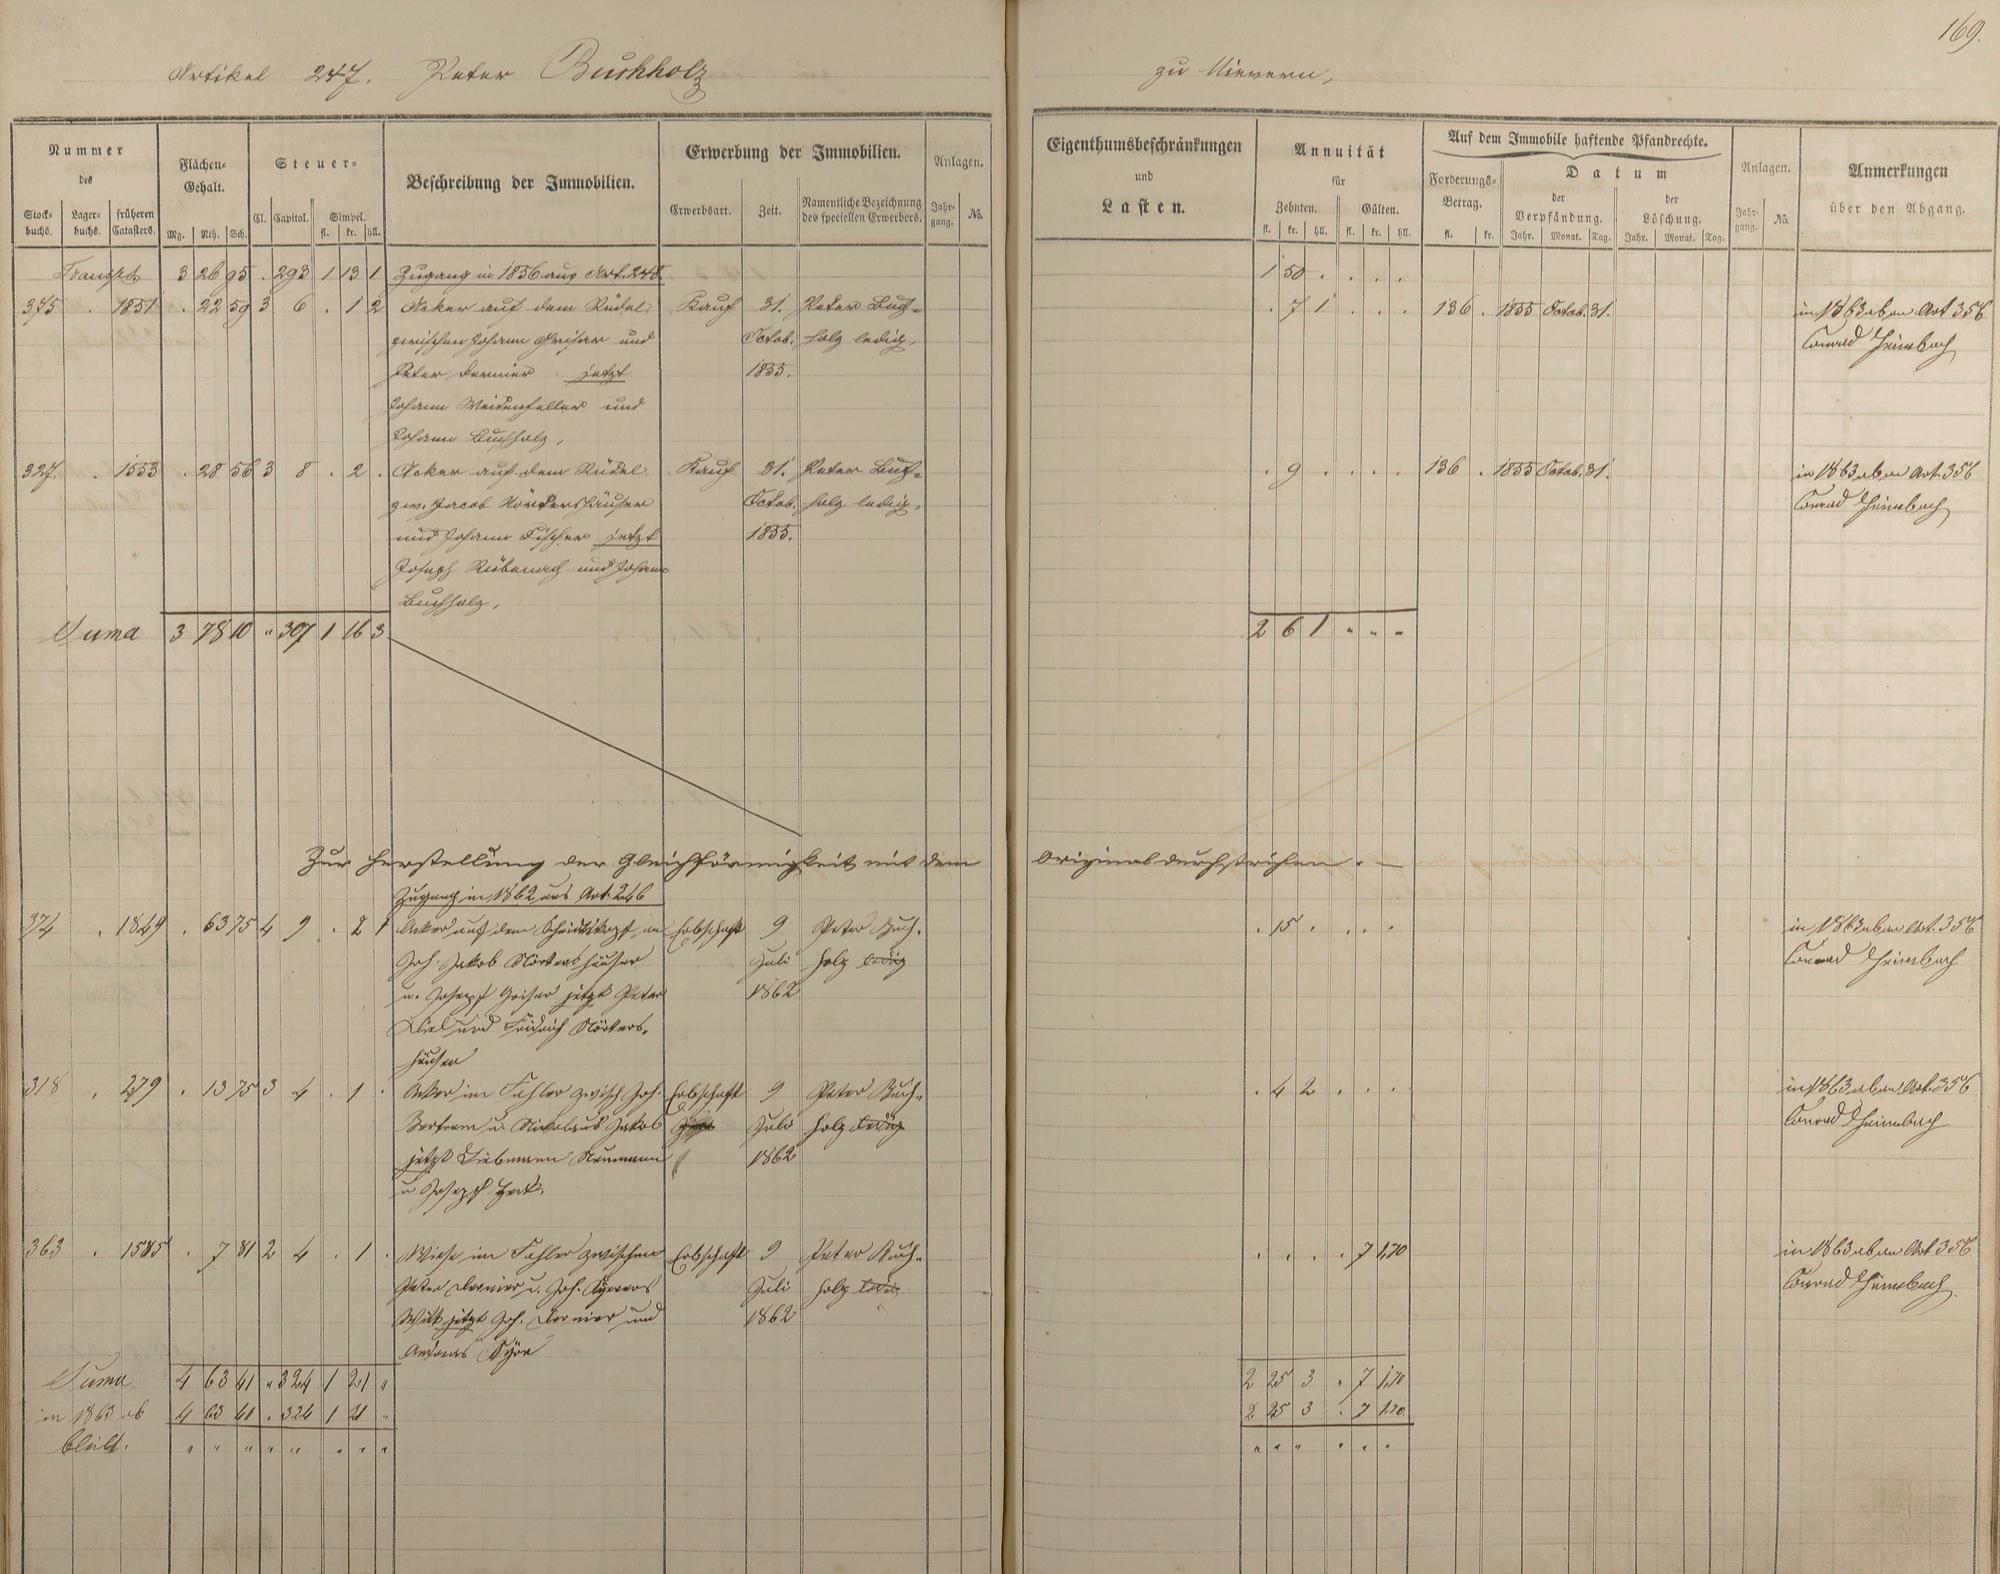 169.
Artikel 247. Peter Buchholz zu Nievern,
Nummer des
Stock-buchs. Lager-buchs. früheren Catasters.
Flächen-Gehalt.
Mg. Rth. Sch.
Steuer-
Cl. Capital. Simpel.
fl. kr. hll.
Beschreibung der Immobilien.
Erwerbung der Immobilien.
Erwerbsart. Zeit. Namentliche Bezeichnung des speciellen Erwerbers.
Anlagen.
Jahr-gang. No.
Eigenthumsbeschränkungen und Lasten.
Annuität für
Zehnten. Gülten.
fl. kr. hll. fl. kr. hll.
Auf dem Immobile haftende Pfandrechte.
Forderungs-Betrag. Datum
fl. kr. der Verpfändung. der Löschung.
Jahr. Monat. Tag. Jahr. Monat. Tag.
Anlagen.
Jahr-gang. No.
Anmerkungen über den Abgang.
Transpt 3 26 95 . 293 1 13 1 Zugang in 1856 aus Art. 248. 1 50 . . . .
375 . 1851 . 22 59 3 6 . 1 2 Acker auf dem Rüdel Kauf 31. Peter Buch- . 7 1 . . . 136 . 1855 Octob. 31. in 1863 ab an Art 356
zwischen Johann Grisar und Octob. holz ledig, Conrad Heimbach
Peter Dernier jetzt 1855.
Johann Weidenfeller und
Johann Buchholz,
327. . 1553 . 28 56 3 8 . 2 . Acker auf dem Rüdel Kauf 31. Peter Buch- . 9 . . . . 136 . 1855 Octob. 31. in 1863 ab an Art. 356
zw. Jacob Nörtershäuser Octob. holz ledig, Conrad Heimbach
und Johann Fischer jetzt 1855.
Joseph Rübenach und Johann
Buchholz,
Suma 3 78 10 " 307 1 16 3 2 6 1 " " "
Zur Herstellung der Gleichförmigkeit mit dem Original durchstrichen. —
Zugang in 1862 aus Art. 246
374 . 1849 . 63 75 4 9 . 2 1 Acker auf dem Erbschaft 9 Peter Buch- . 15 . . . . in 1863 ab an Art. 356
Joh. Jakob Nörtershäuser Juli holz ledig Conrad Heimbach
u. Joseph Grisar jetzt Peter 1862
Diel und Fridrich Nörters-
häuser
318 . 279 . 13 75 3 4 . 1 . Acker im Fahler zwisch Joh. Erbschaft 9 Peter Buch- . 4 2 . . . in 1863 ab an Art. 356
Bertram u. Nikolaus Jakob Juli holz ledig Conrad Heimbach
jetzt Liebmann Neumann 1862
u Joseph
363 . 1585 . 7 81 2 4 . 1 . Wiese im Fahler zwischen Erbschaft 9 Peter Buch- . . . . 7 1,70 in 1863 ab an Art 356
Peter Dernier u. Joh. Juli holz ledig Conrad Heimbach
jetzt Joh. Dernier und 1862
Andreas
Suma 4 63 41 " 324 1 21 " 2 25 3 " 7 1,70
in 1863 ab 4 63 41 . 324 1 21 " 2 25 3 . 7 1.70
bleibt. " " " " " " " " " " " " " "